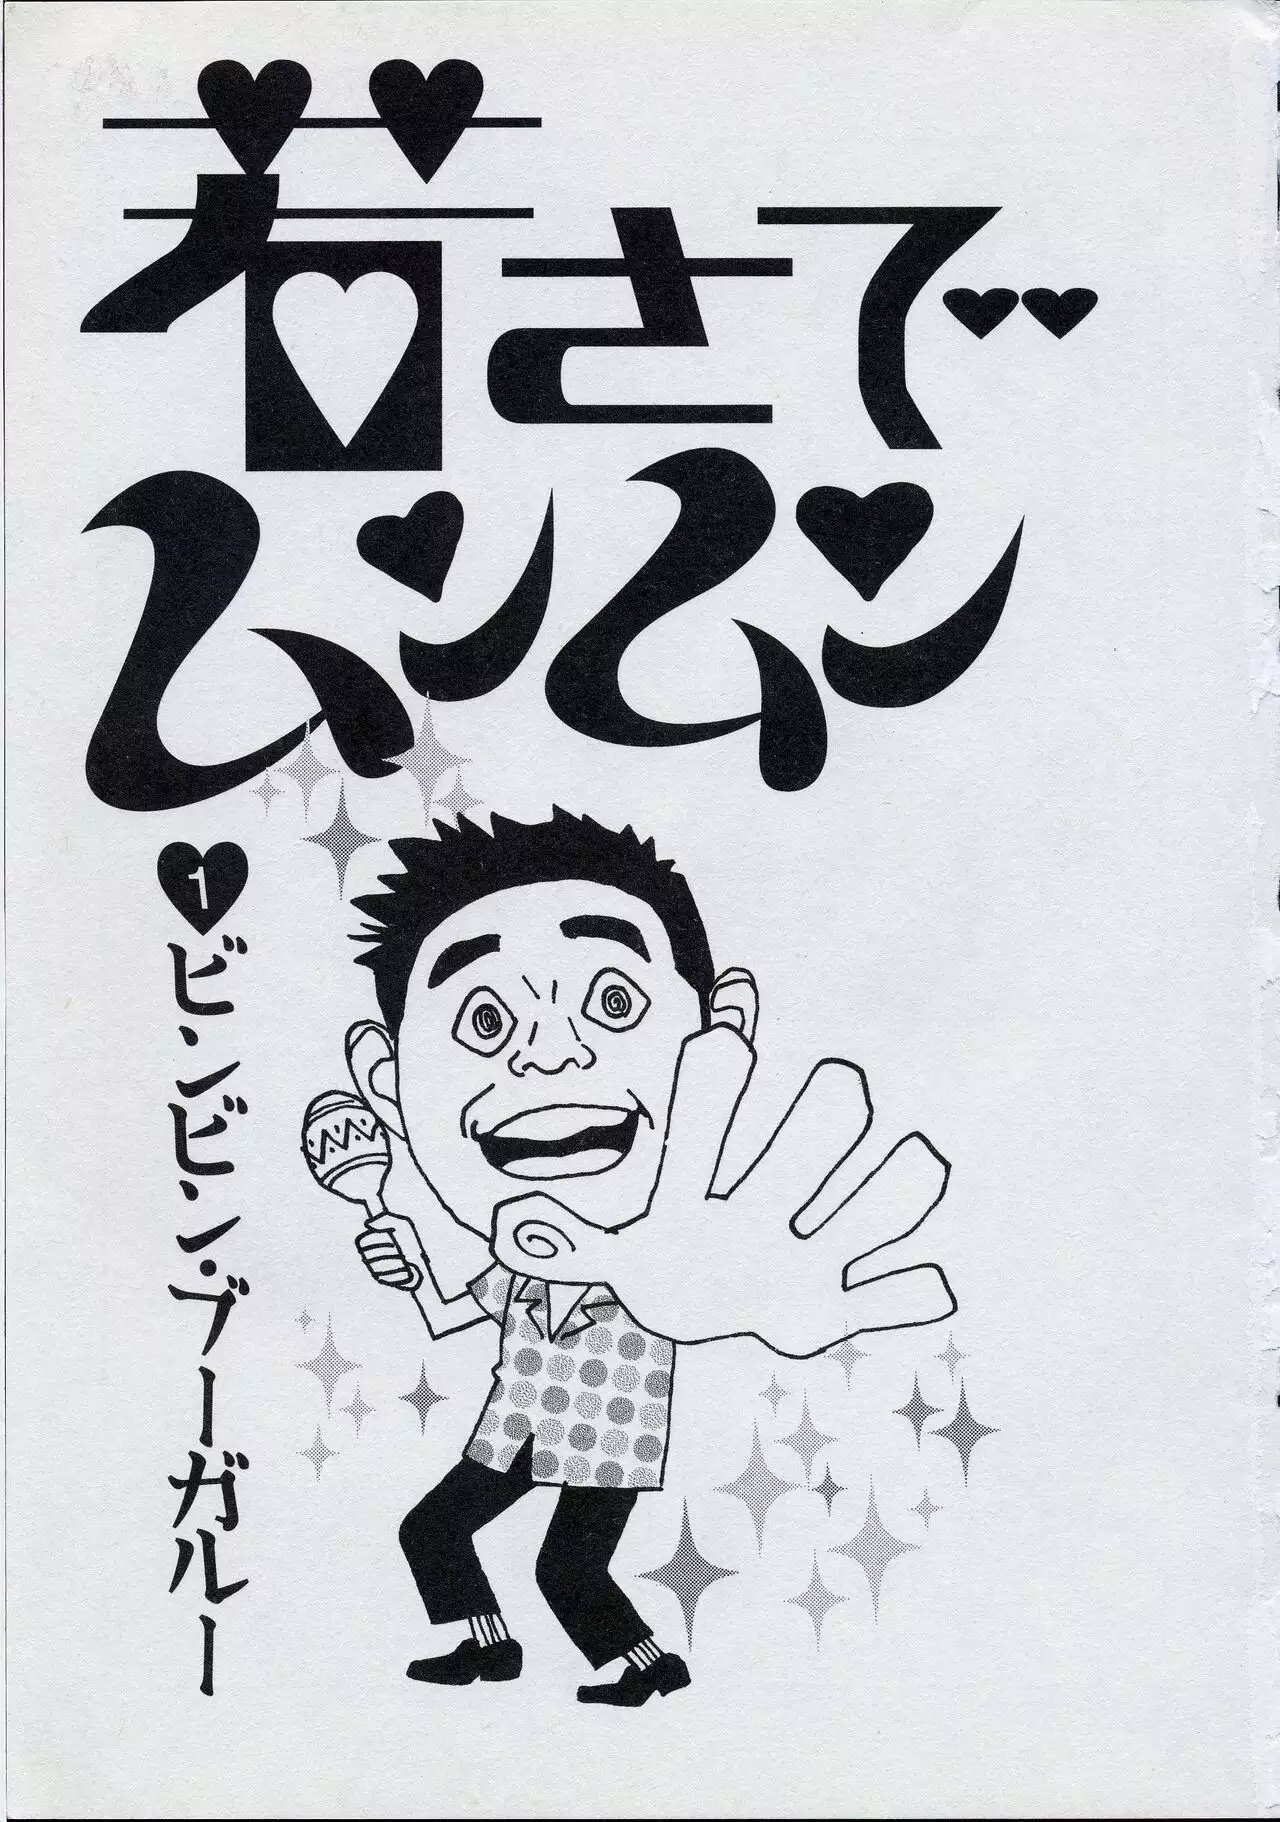 若さで…
ムンムン
1
ビンビン・ブーガルー